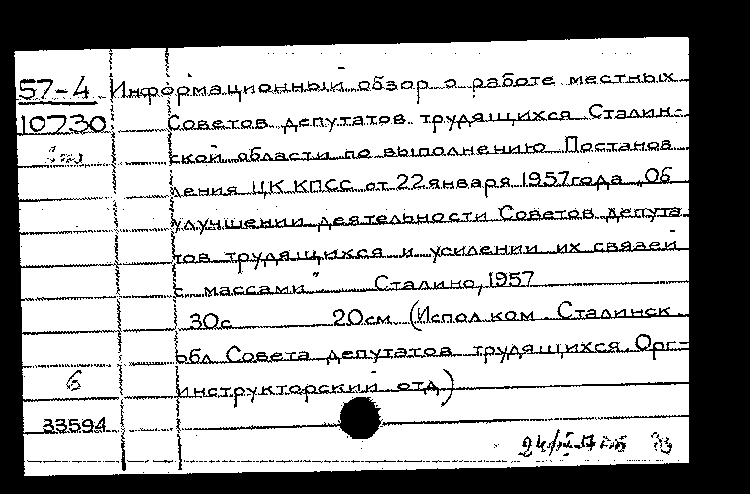 57-4 Информационный обзор о работе местных
10730 Советов депутатов трудящихся Сталин-
ской области по выполнению Постанов
ления ЦК КПСС от 22 января 1957 года „Об
улучшении деятельности Советов депута
тов трудящихся и усилении их связей
с массами" Сталино, 1957
30с 20см (Исполком. Сталинск.
обл Совета депутатов трудящихся. Орг-
6 инструкторский отд)
33594